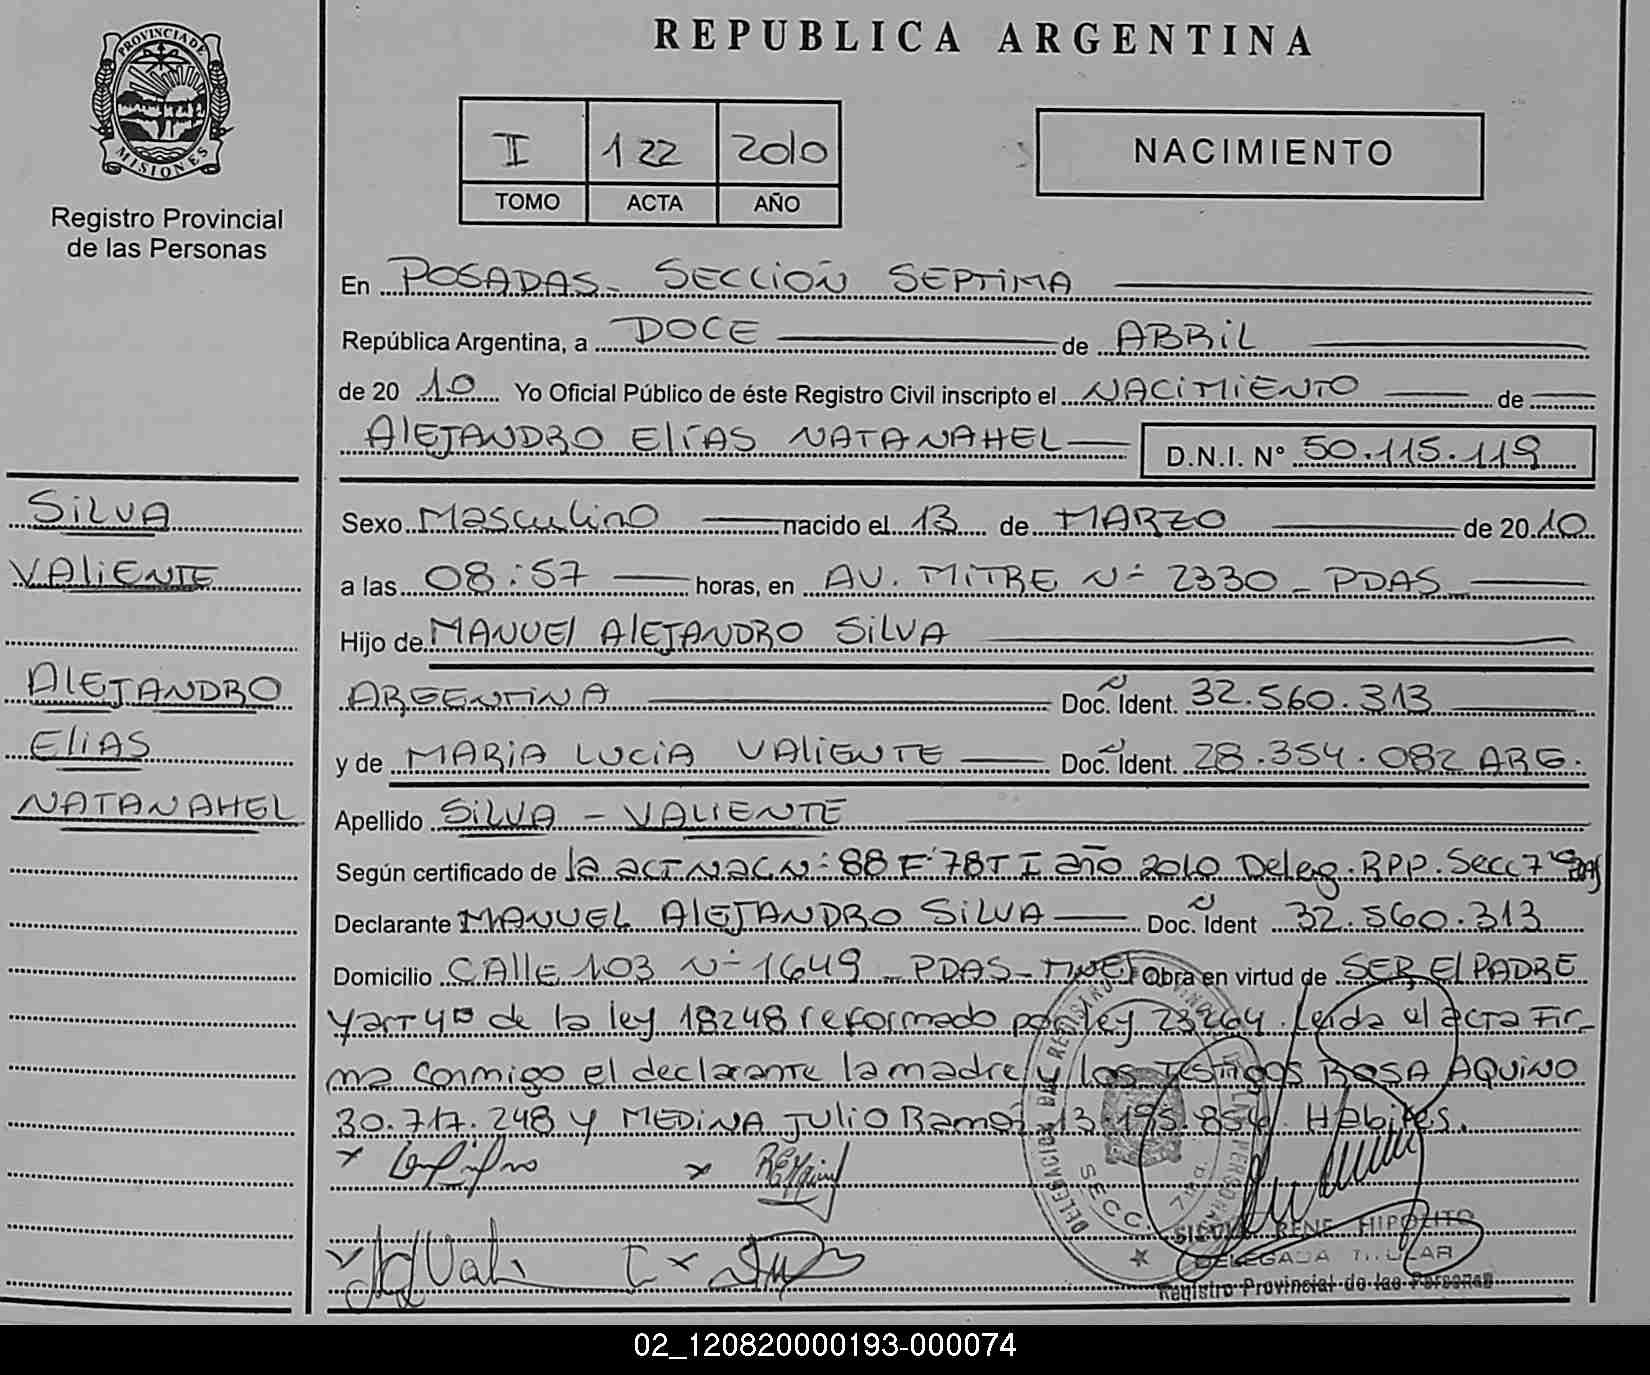 REPUBLICA ARGENTINA
PROVINCIA DE
MISIONES
Registro Provincial
de las Personas
I 122 2010
TOMO ACTA AÑO
NACIMIENTO
En POSADAS- SECCIÓN SEPTIMA
República Argentina, a DOCE de ABRIL
de 20 10 Yo Oficial Público de éste Registro Civil inscripto el NACIMIENTO de
ALEJANDRO ELÍAS NATANAHEL D.N.I. N° 50.115.119
SILVA
VALIENTE
ALEJANDRO
ELIAS
NATANAHEL
Sexo Masculino nacido el 13 de MARZO de 20 10
a las 08:57 horas, en AV. MITRE N- 2330 - PDAS
Hijo de MANUEL ALEJANDRO SILVA
ARGENTINA Doc. Ident. 32.560.313
y de MARIA LUCIA VALIENTE Doc. Ident. 28.354.082 ARG.
Apellido SILVA - VALIENTE
Según certificado de la ACT NAC N: 88 F 78 T I año 2010 Deleg. RPP. Secc 7
Declarante MANUEL ALEJANDRO SILVA Doc. Ident 32.560.313
Domicilio CALLE 103 N- 1649 - PDAS- Obra en virtud de SER EL PADRE
y art 4º de la ley 18248 reformado por ley 23264. Leída el acta Fir-
ma conmigo el declarante la madre y los testigos ROSA AQUINO
30.717.248 Y MEDINA JULIO Ramón 13.195.854. Hábiles.
SECC. 7ma
RENE HIPOLITO
DELEGADA TITULAR
Registro Provincial de las Personas
02_120820000193-000074